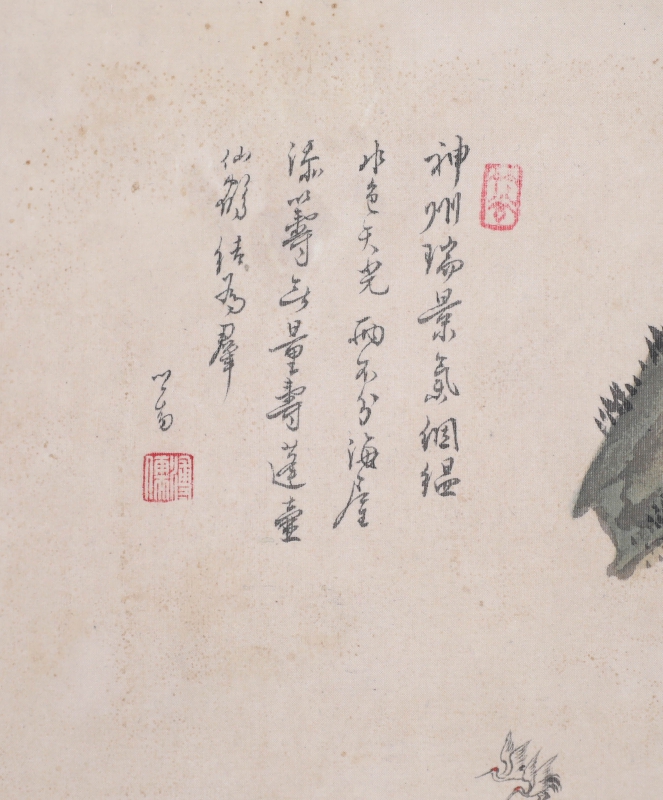 神州瑞景氣絪緼
水色天光兩不分海屋
添籌無量壽蓬壺
仙鶴結為羣
心畬
溥儒